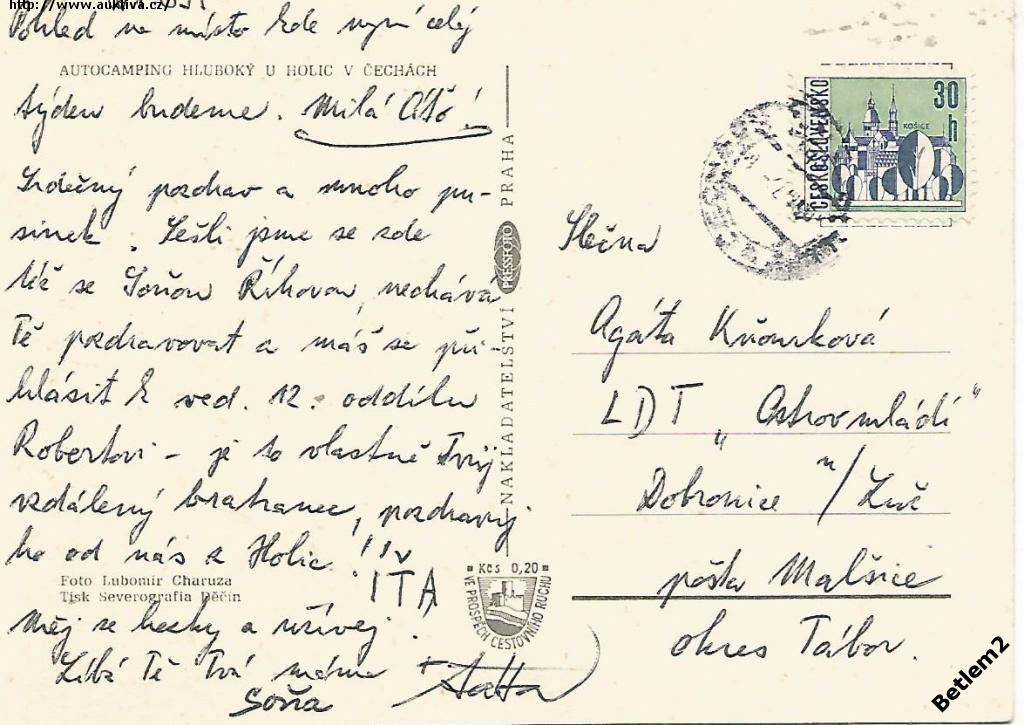 http://www.auktiva.cz/
Pohled na místo kde nyní celý
AUTOCAMPING HLUBOKÝ U HOLIC V ČECHÁCH
týden budeme. Milá Áťo!
Srdečný pozdrav a mnoho pu-
sinek. Sešli jsme se zde
též se Soňou Říhovou, nechává
Tě pozdravovat a máš se při-
hlásit k ved. 12. oddílu
Robertovi – je to vlastně Tvůj
vzdálený bratranec, pozdravuj
ho od nás z Holic!!
ÍŤA
Foto Lubomír Charuza
Tisk Severografia Děčín
Měj se hezky a užívej!
Líbá Tě Tvá máma
Soňa
+ Tatta
NAKLADATELSTVÍ PRESSFOTO PRAHA
Kčs 0,20
VE PROSPĚCH CESTOVNÍHO RUCHU
ČESKOSLOVENSKO
30 h
KOŠICE
Slečna
Agáta
LDT „Ostrov mládí"
Dobronice n/Luž
pošta Malšice
okres Tábor.
Betlem2